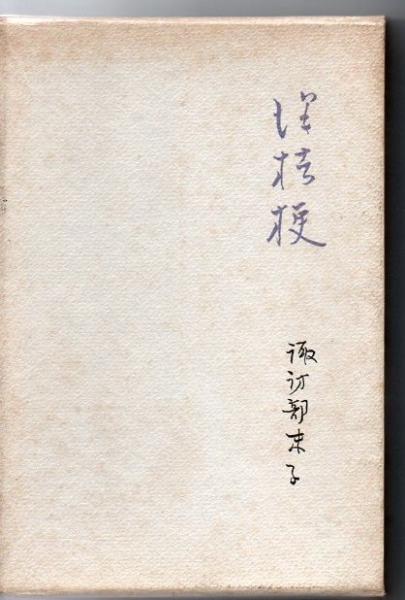 洋桔梗
諏訪部末子